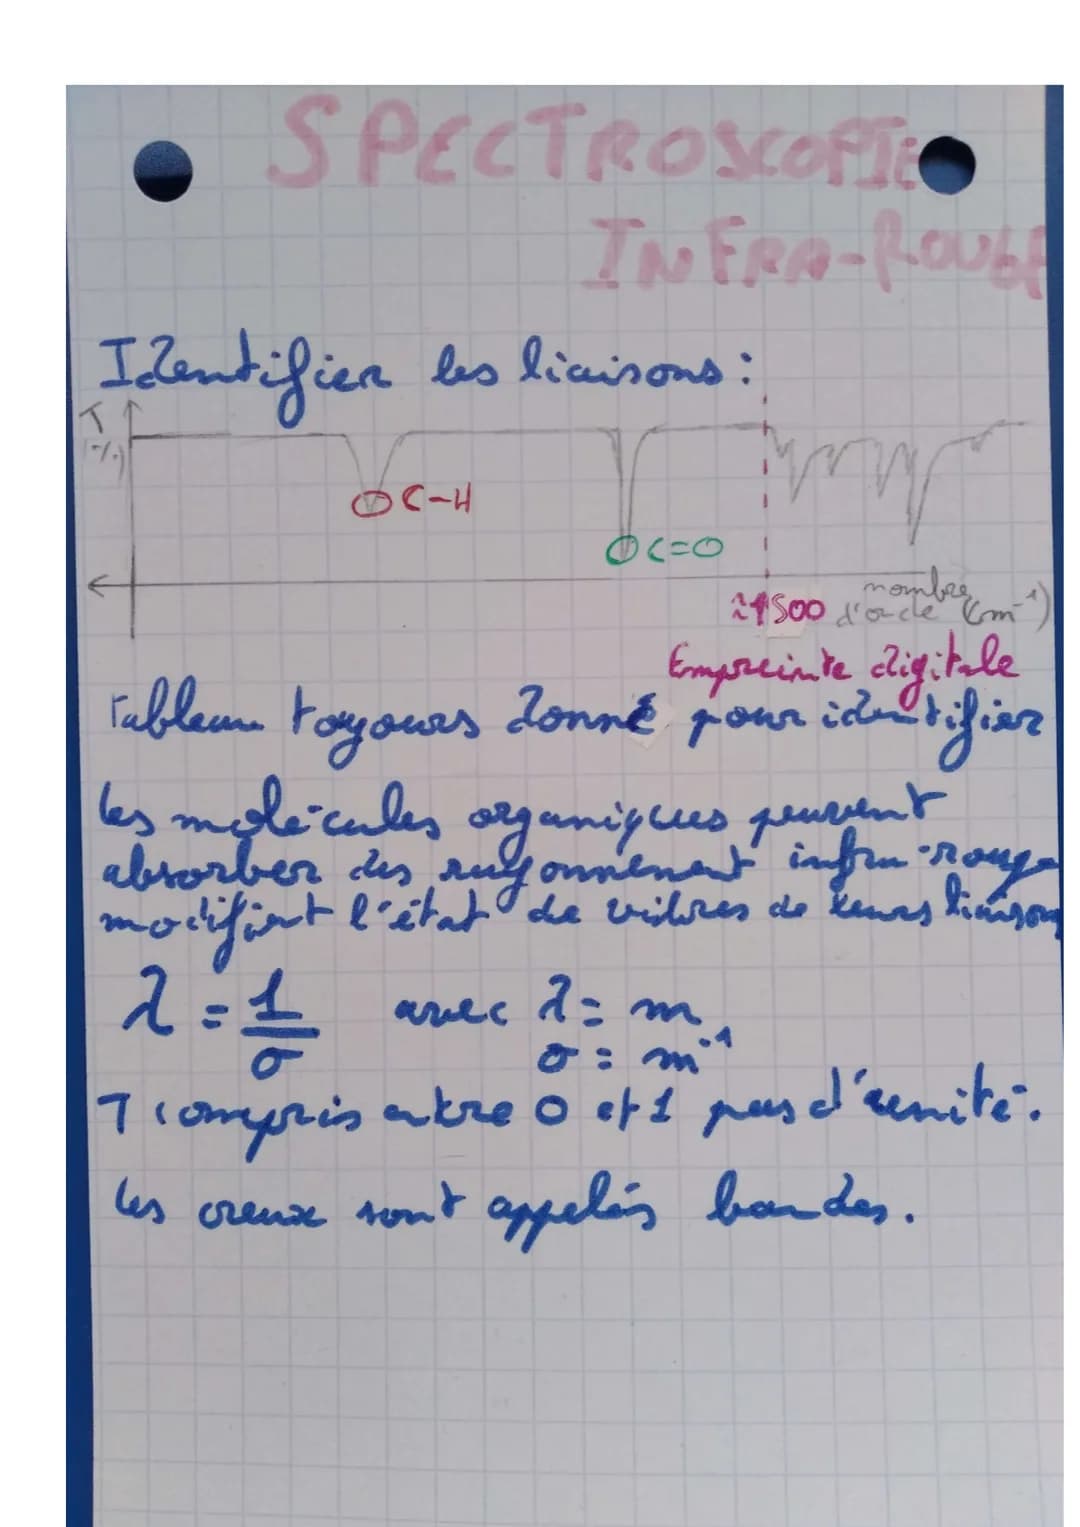 SPECTROSCOPIE
INFRA-ROUGE
Identifier les liaisons :
T
(%)
C-H
C=O
≈1500
nombre
d'onde (cm⁻¹)
Empreinte digitale
Tableau toujours donné pour identifier
les molécules organiques peuvent
absorber des rayonnement infra-rouge
modifiant l'état de vibres de leurs liaisons
λ = 1/σ avec λ = m
σ = m⁻¹
T compris entre 0 et 1 pas d'unité.
les creux sont appelés bandes.